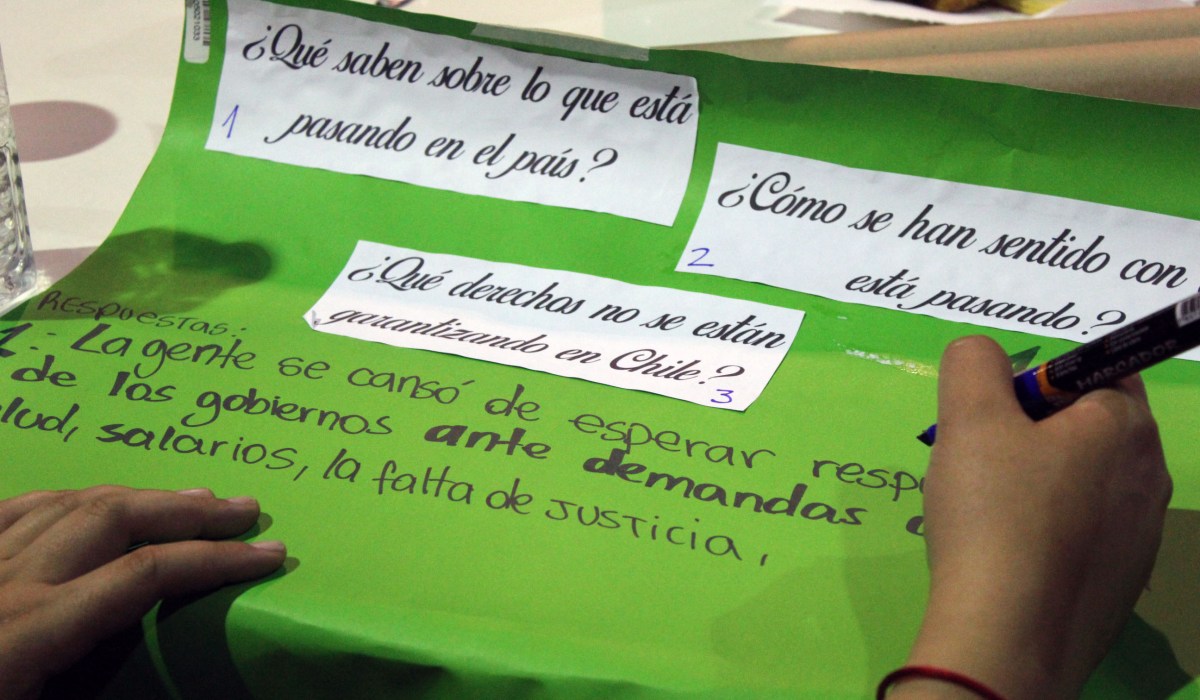 ¿Qué saben sobre lo que está
1 pasando en el país?
¿Cómo se han sentido con
2 está pasando?
¿Qué derechos no se están
garantizando en Chile?
3
RESPUESTAS:
1.: La gente se cansó de esperar resp
de los gobiernos ante demandas
lud, salarios, la falta de JUSTICIA,
MARCADOR